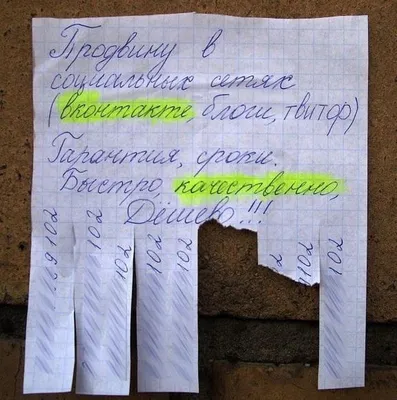 Продвину в
социальных сетях
(вконтакте, блоги, твитор)
Гарантия, сроки.
Быстро, качественно,
Дёшево!!!
102
102
102
102
102
2
102
102